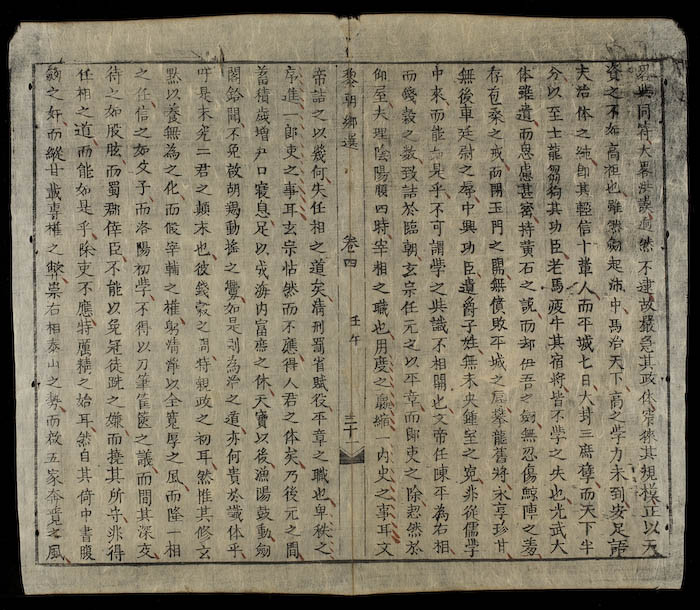 畧與同符大畧洪謨逈然不逮故嚴急其政体窄狹其規模正以天
資之不如高祖也雖然劍起沛中馬治天下高之學力未到安足語
夫治体之純即其輕信十輩人而平城七日大封三庶孽而天下半
分以至士龍芻狗其功臣老馬疲牛其宿將皆不學之失也光武大
体雖遺而思慮甚密持黃石之說而却伊吾之劍無忍傷鯨陣之
存苞桑之戒而閉玉門之關無憤敗平城之辱攀龍舊將永享珍甘
無後車廷尉之辱中興功臣遺爵子姓無未央鍾室之寃非從儒學
中來而能如是乎不可謂學之與識不相關也文帝任陳平為右相
而錢穀之数致詰於臨朝玄宗任元之以平章而郎吏之除恝然於
仰室夫理陰陽順四時宰相之職也用度之贏縮一内史之事耳文
黎朝鄉選 卷四 壬午 三十一
帝詰之以幾何失任相之道矣清刑罰省賦役平章之職也卑秩之
序進一郎吏之事耳玄宗怙然而不應得人君之体矣乃後元之間
蓄積歲增戶口寢息足以成海内富庶之休天寶以後漁陽鼓動劍
閣鈴聞不免啟胡羯動搖之釁如是則為治之道亦何貴於識体乎
吁是未究二君之顛末也彼錢穀之問特親政之初耳然惟其修玄
默以養無為之化而假宰輔之權躬清靜以全寬厚之風而隆一相
之任信之如父子而洛陽初學不得以刀筆筐篋之議而間其深交
待之如股肱而蜀郡倖臣不能以免冠徒跣之嫌而撓其所守非得
任相之道而能如是乎除吏不應特厲精之始耳然自其倚中書腹
劍之奸而縱廿載專權之弊祟右相泰山之勢而啟五家奔競之風